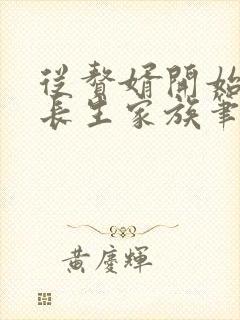 從贅婿開始
長生家族筆
黃慶輝